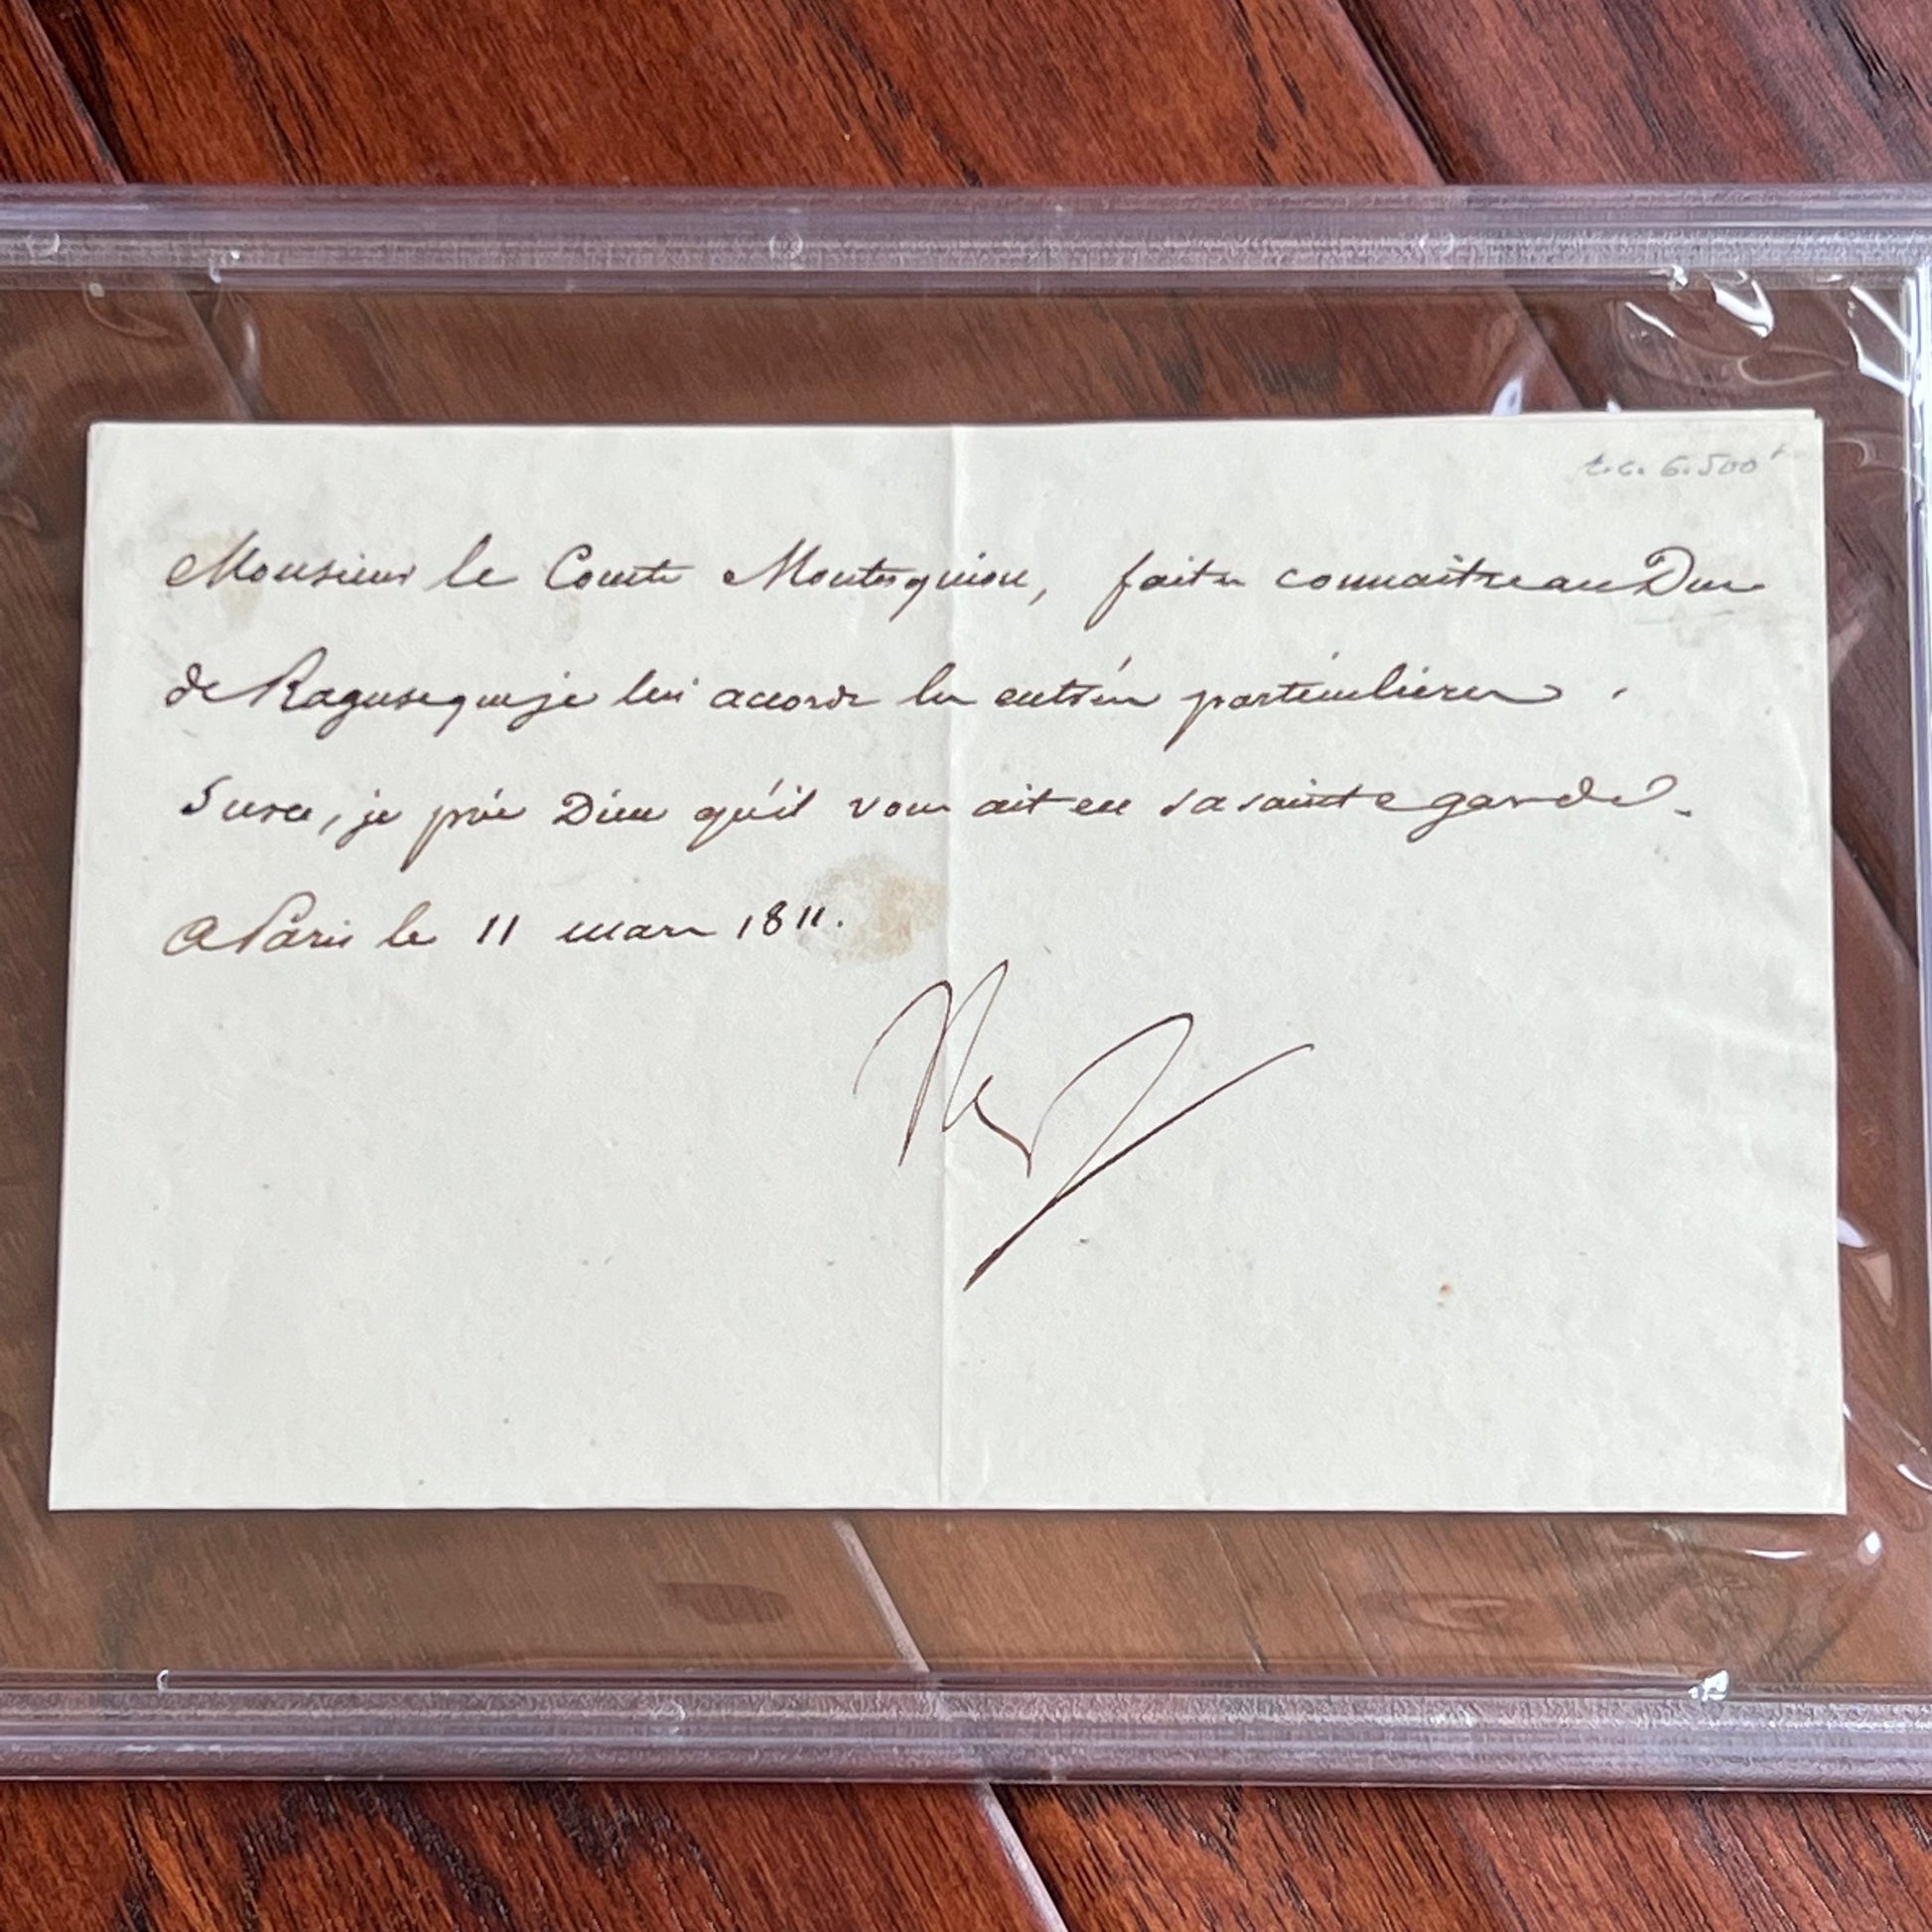 t.c. 6.500
Monsieur le Comte Montesquiou, faites connaître au Duc
de Raguse que je lui accorde les entrées particulières.
Sur ce, je prie Dieu qu'il vous ait en sa sainte garde.
A Paris le 11 mars 1811.
Np